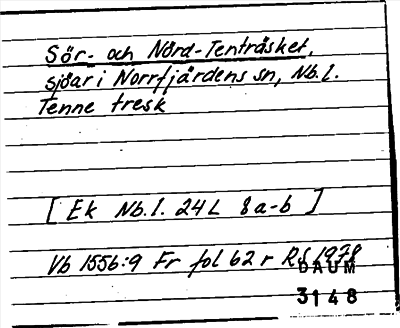 Sör- och Nörd-Tenträsket,
sjöar i Norrfjärdens sn, Nb.l.
Tenne tresk
[ Ek Nb.l. 24L 8a-b ]
Vb 1556:9 Fr fol 62 r RS 1978
DAUM
3148